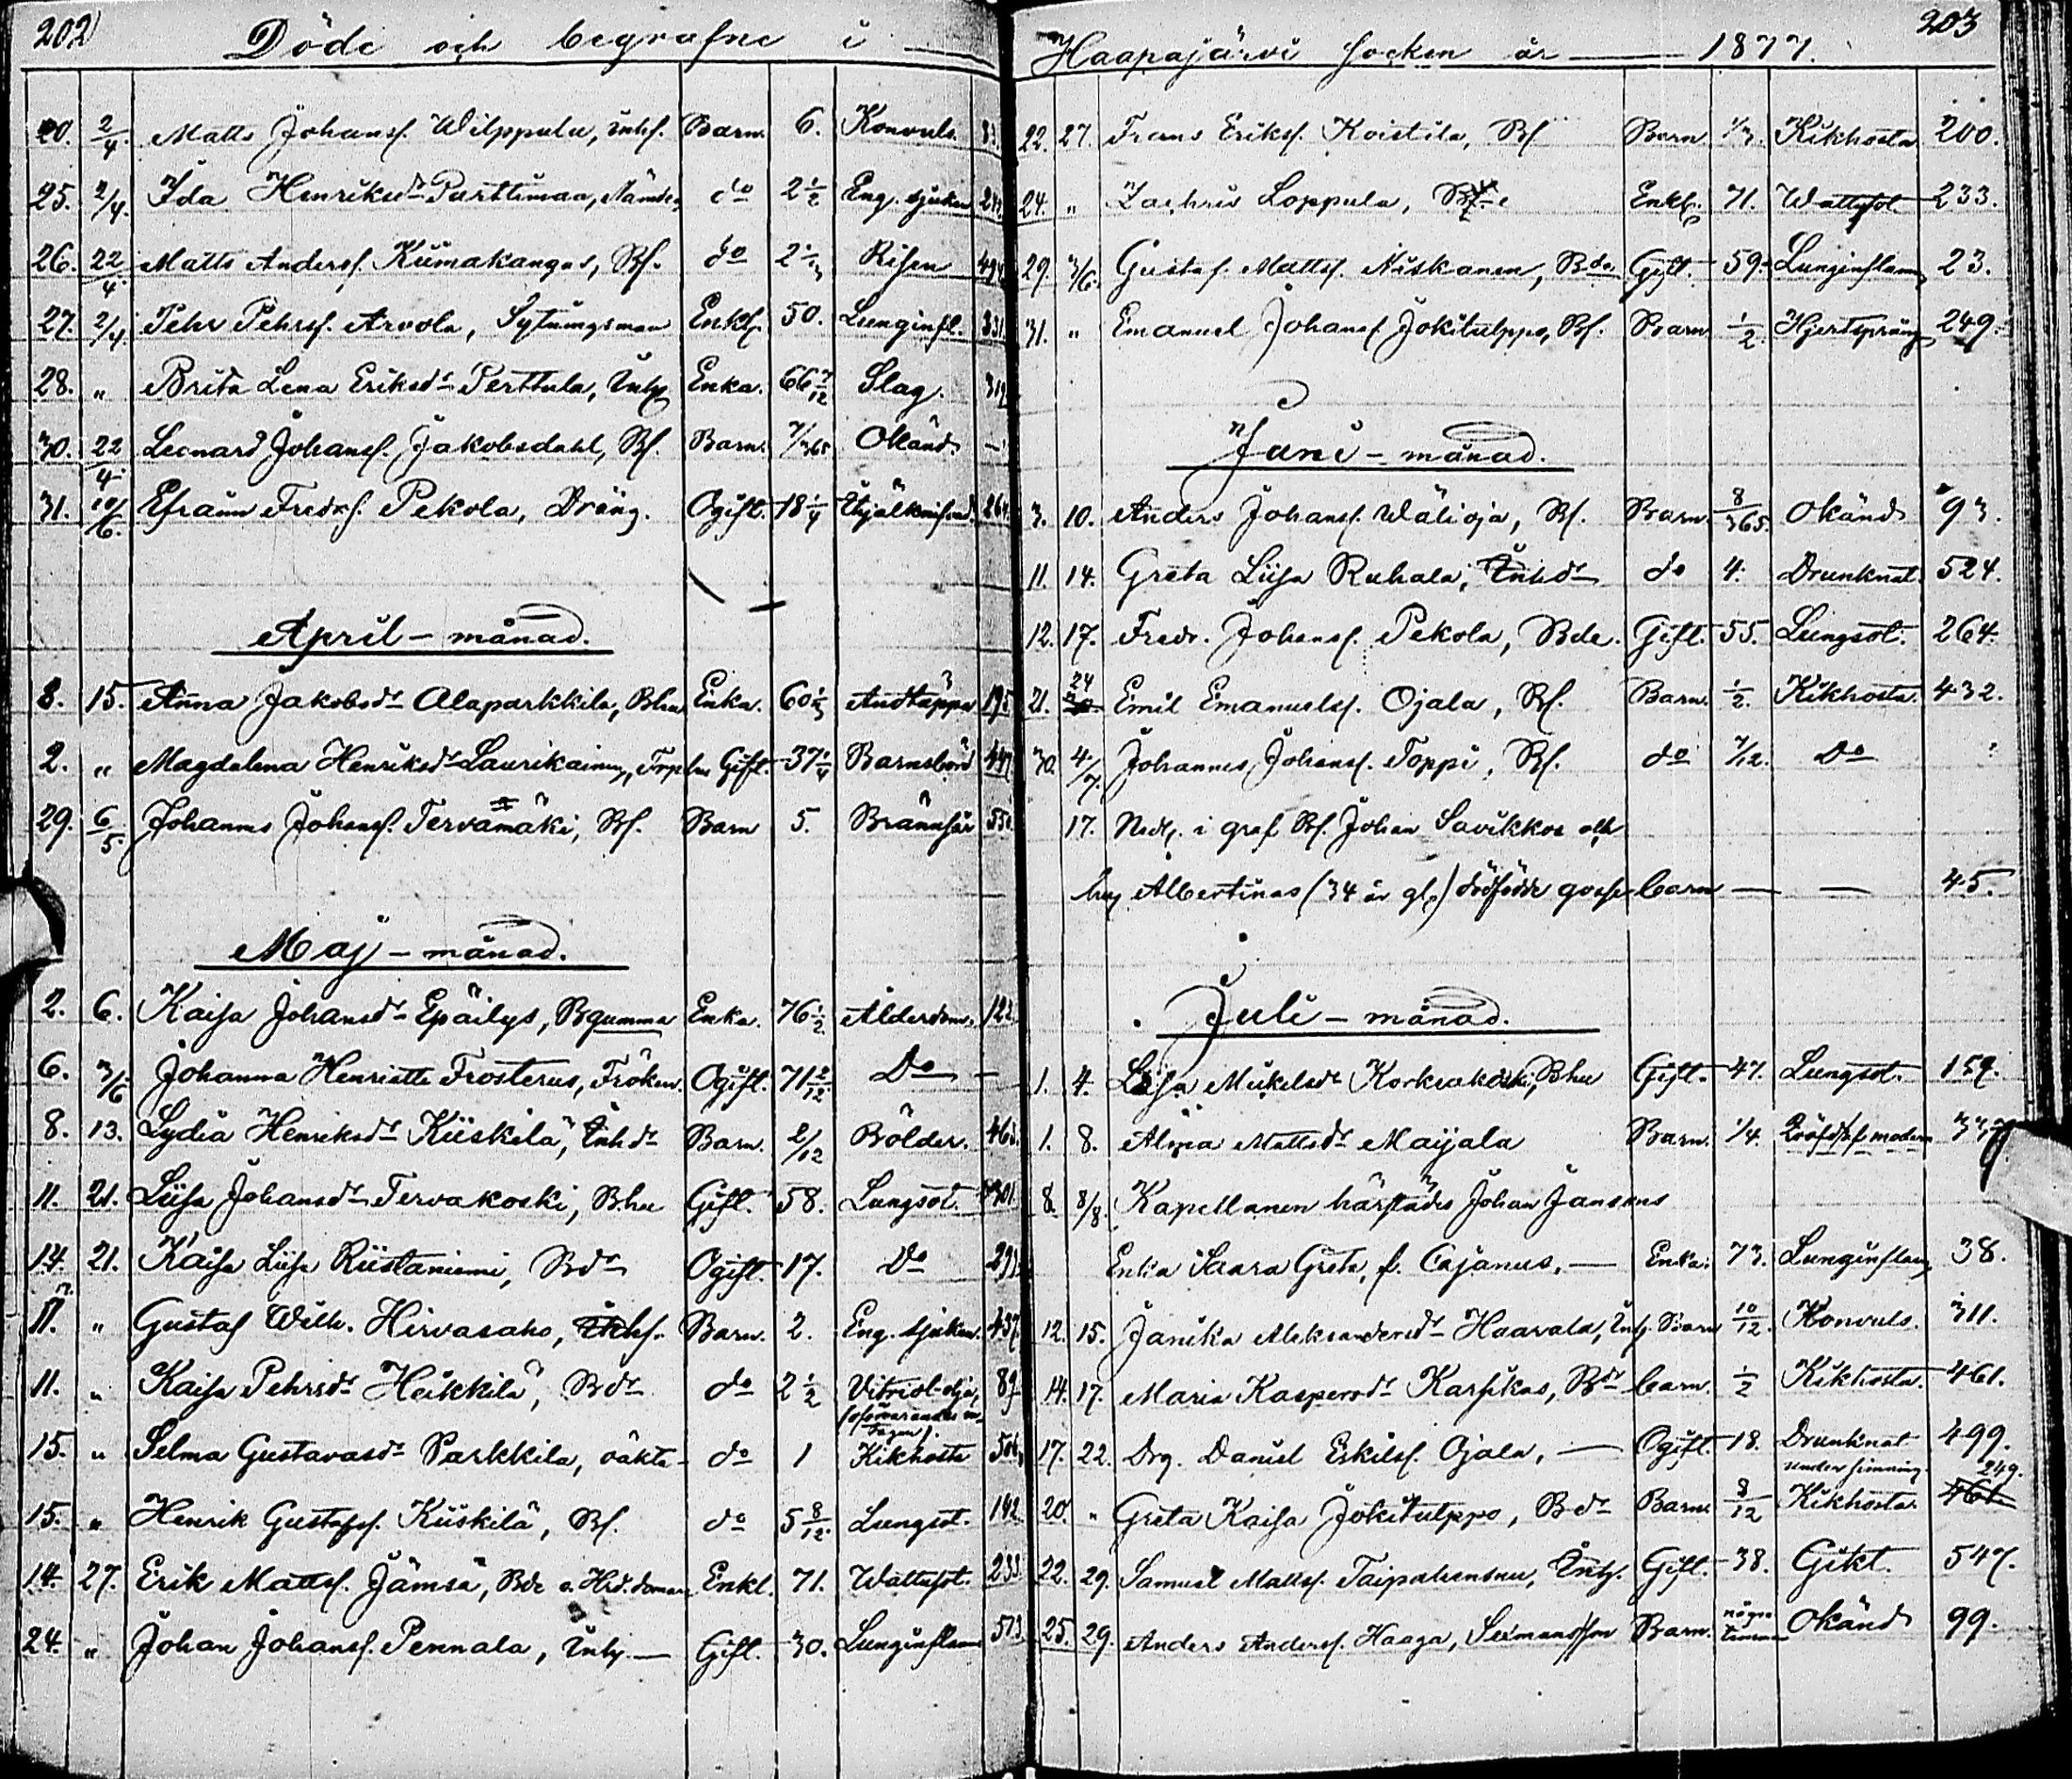 202
Döde och begrafne i
20. 2/4. Matts Johansf. Wilppula, inhf. Barn. 6. Konvuls. 83.
25. 2/4. Ida Henriksd. Parttimaa, do 2 1/2 Eng. sjukan
26. 22/4. Matts Andersf. Kiimakangas, Bf. do 2 Risen 494
27. 2/4 Pehr Pehrsf. Arvola, Sytningsman Enkl. 50. Lunginfl. 331.
28. " Brita Lena Eriksd. Perttula, Inh. Enka. 66 7/12 Slag. 319
30. 22/4 Leonard Johansf. Jakobsdahl, Bf. Barn. 7/365 Okänd. –
31. 10/6. Efraim Fredrf. Pekola, Dräng. Ogift. 18 1/4 Ihjälknifvad. 264.
April - månad.
8. 15. Anna Jakobsd. Alaparkkila, Bhu Enka. 60 Andtäppa 195
2. " Magdalena Henriksd. Laurikainen, Torphu Gift. 37 1/4 Barnsbörd 447
29. 6/5. Johannes Johansf. Tervamäki, Bf. Barn 5. Brännsår 550.
Maj - månad.
2. 6. Kaisa Johansd. Epäilys, Bgumma Enka. 76 1/2 Ålderdom. 122.
6. 3/6 Johanna Henriette Frosterus, Fröken. Ogift. 71 2/12. Do –
8. 13. Lydia Henriksd. Kiiskilä, Inhd. Barn. 2/12 Bölder. 463.
11. 21. Liisa Johansd. Tervakoski, B.hu Gift. 58. Lungsot. 301.
14. 21. Kaisa Liisa Riistaniemi, Bd. Ogift. 17. Do 299
17. " Gustaf Wilh. Hirvasaho, Inhf. Barn. 2. Eng. sjukan. 437.
11. " Kaisa Pehrsd. Heikkilä, Bd. do 2 1/2 Vitriol-olja, 89
(oförvarandes in-
tagen).
15. " Selma Gustavasd. Parkkila, oäkta - do 1 Kikhosta 506.
15. " Henrik Gustafsf. Kiiskilä, Bf. do 5 8/12. Lungsot. 142.
14. 27. Erik Mattsf. Jämsä, Bde o. Hd.doman Enkl. 71. Wattusot. 233.
24. " Johan Johansf. Pennala, Inh. — Gift. 30. Lunginflam 513.
203
Haapajärvi Socken år — 1877.
22. 27. Frans Eriksf. Koistila, Bf Barn 1/3. Kikhosta 200.
24. " Zachris Loppula, Enkl. 71. Wattusot 233.
29. 3/6. Gustaf Mattsf. Niskanen, Bde Gift. 59. Lunginflam 23.
31. " Emanuel Johansf. Jokitulppo, Bf. Barn 1/2. Hjertsprång 249.
Juni - månad.
3. 10. Anders Johansf. Wälioja, Bf. Barn. 8/365. Okänd 93.
11. 14. Greta Liisa Ruhala, Inhd. do 4. Drunknat. 524.
12. 17. Fredr. Johansf. Pekola, Bde. Gift. 55. Lungsot. 264.
21. 24 Emil Emanuelsf. Ojala, Bf. Barn. 1/2. Kikhosta. 432.
30. 4/7. Johannes Johansf. Toppi, Bf. do 7/12. Do ?
17. Neds. i graf Bf. Johan Savikkos och
hus Albertinas (34 år gl.) dödfödde gosse barn — — 45.
Juli - månad.
1. 4. Liisa Mikelsd. Korkeakoski, Bhu Gift. 47. Lungsot. 159.
1. 8. Alma Mattsd. Maijala Barn. 1/4. modern
8. 8/8. Kapellanen härstädes Johan Jansens
Enka Saara Greta, f. Cajanus. — Enka. 73. Lunginflam 38.
12. 15. Janika Aleksandersd. Haavala, Inh. Barn 10/12. Konvuls. 311.
14. 17. Maria Kaspersd. Karsikas, Bd. barn. 1/2 Kikhosta. 461.
17. 22. Drg. Daniel Eskilsf. Ojala, — Ogift. 18. Drunknat 499.
under simning. 249.
20. " Greta Kaisa Jokitulppo, Bd. Barn. 8/12 Kikhosta. 461
22. 29. Samuel Mattsf. Taipalensuu, Inh. Gift. 38. Gikt. 547.
25. 29. Anders Andersf. Haaga, Barn. några timmar Okänd 99.